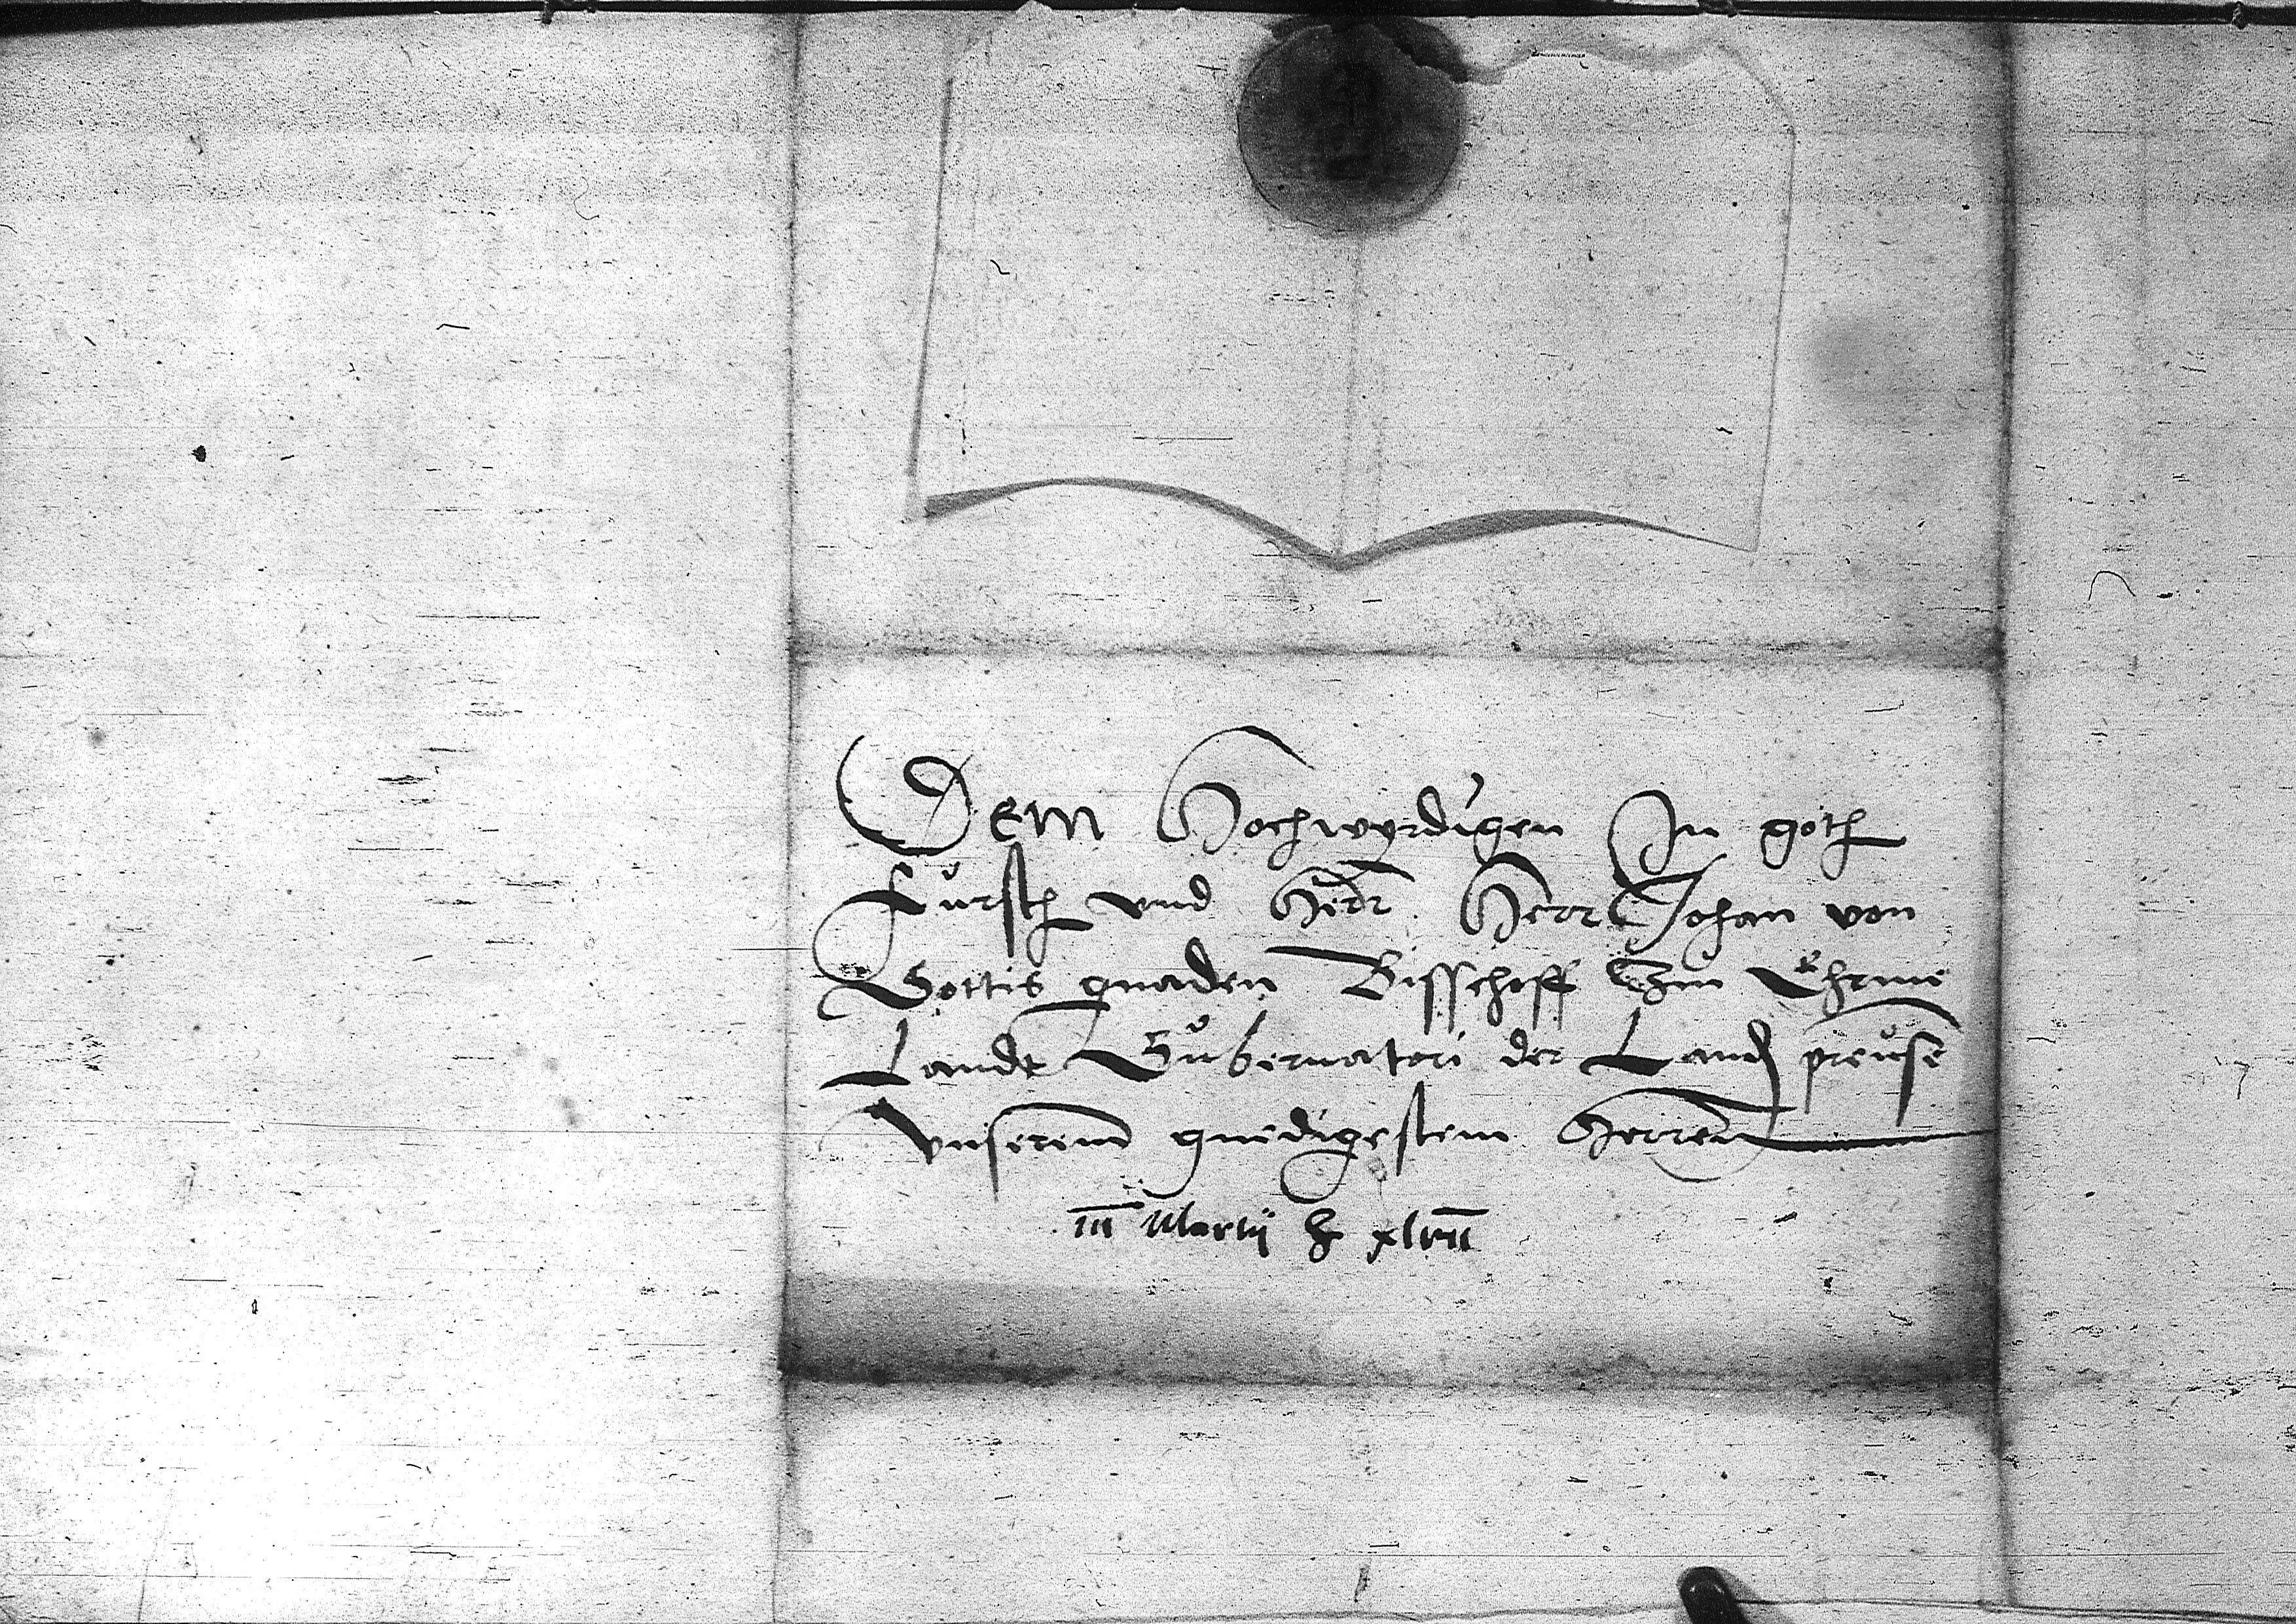 Dem Hochwyrdigen In goth
Fursth vnd Herr Herr Johan von
Gottis gnaden Bisschoff Zum Ehrme
Landt Gubernatori der Land preuse
Vnserem gnedigestem Herren
iii Martij xlviii